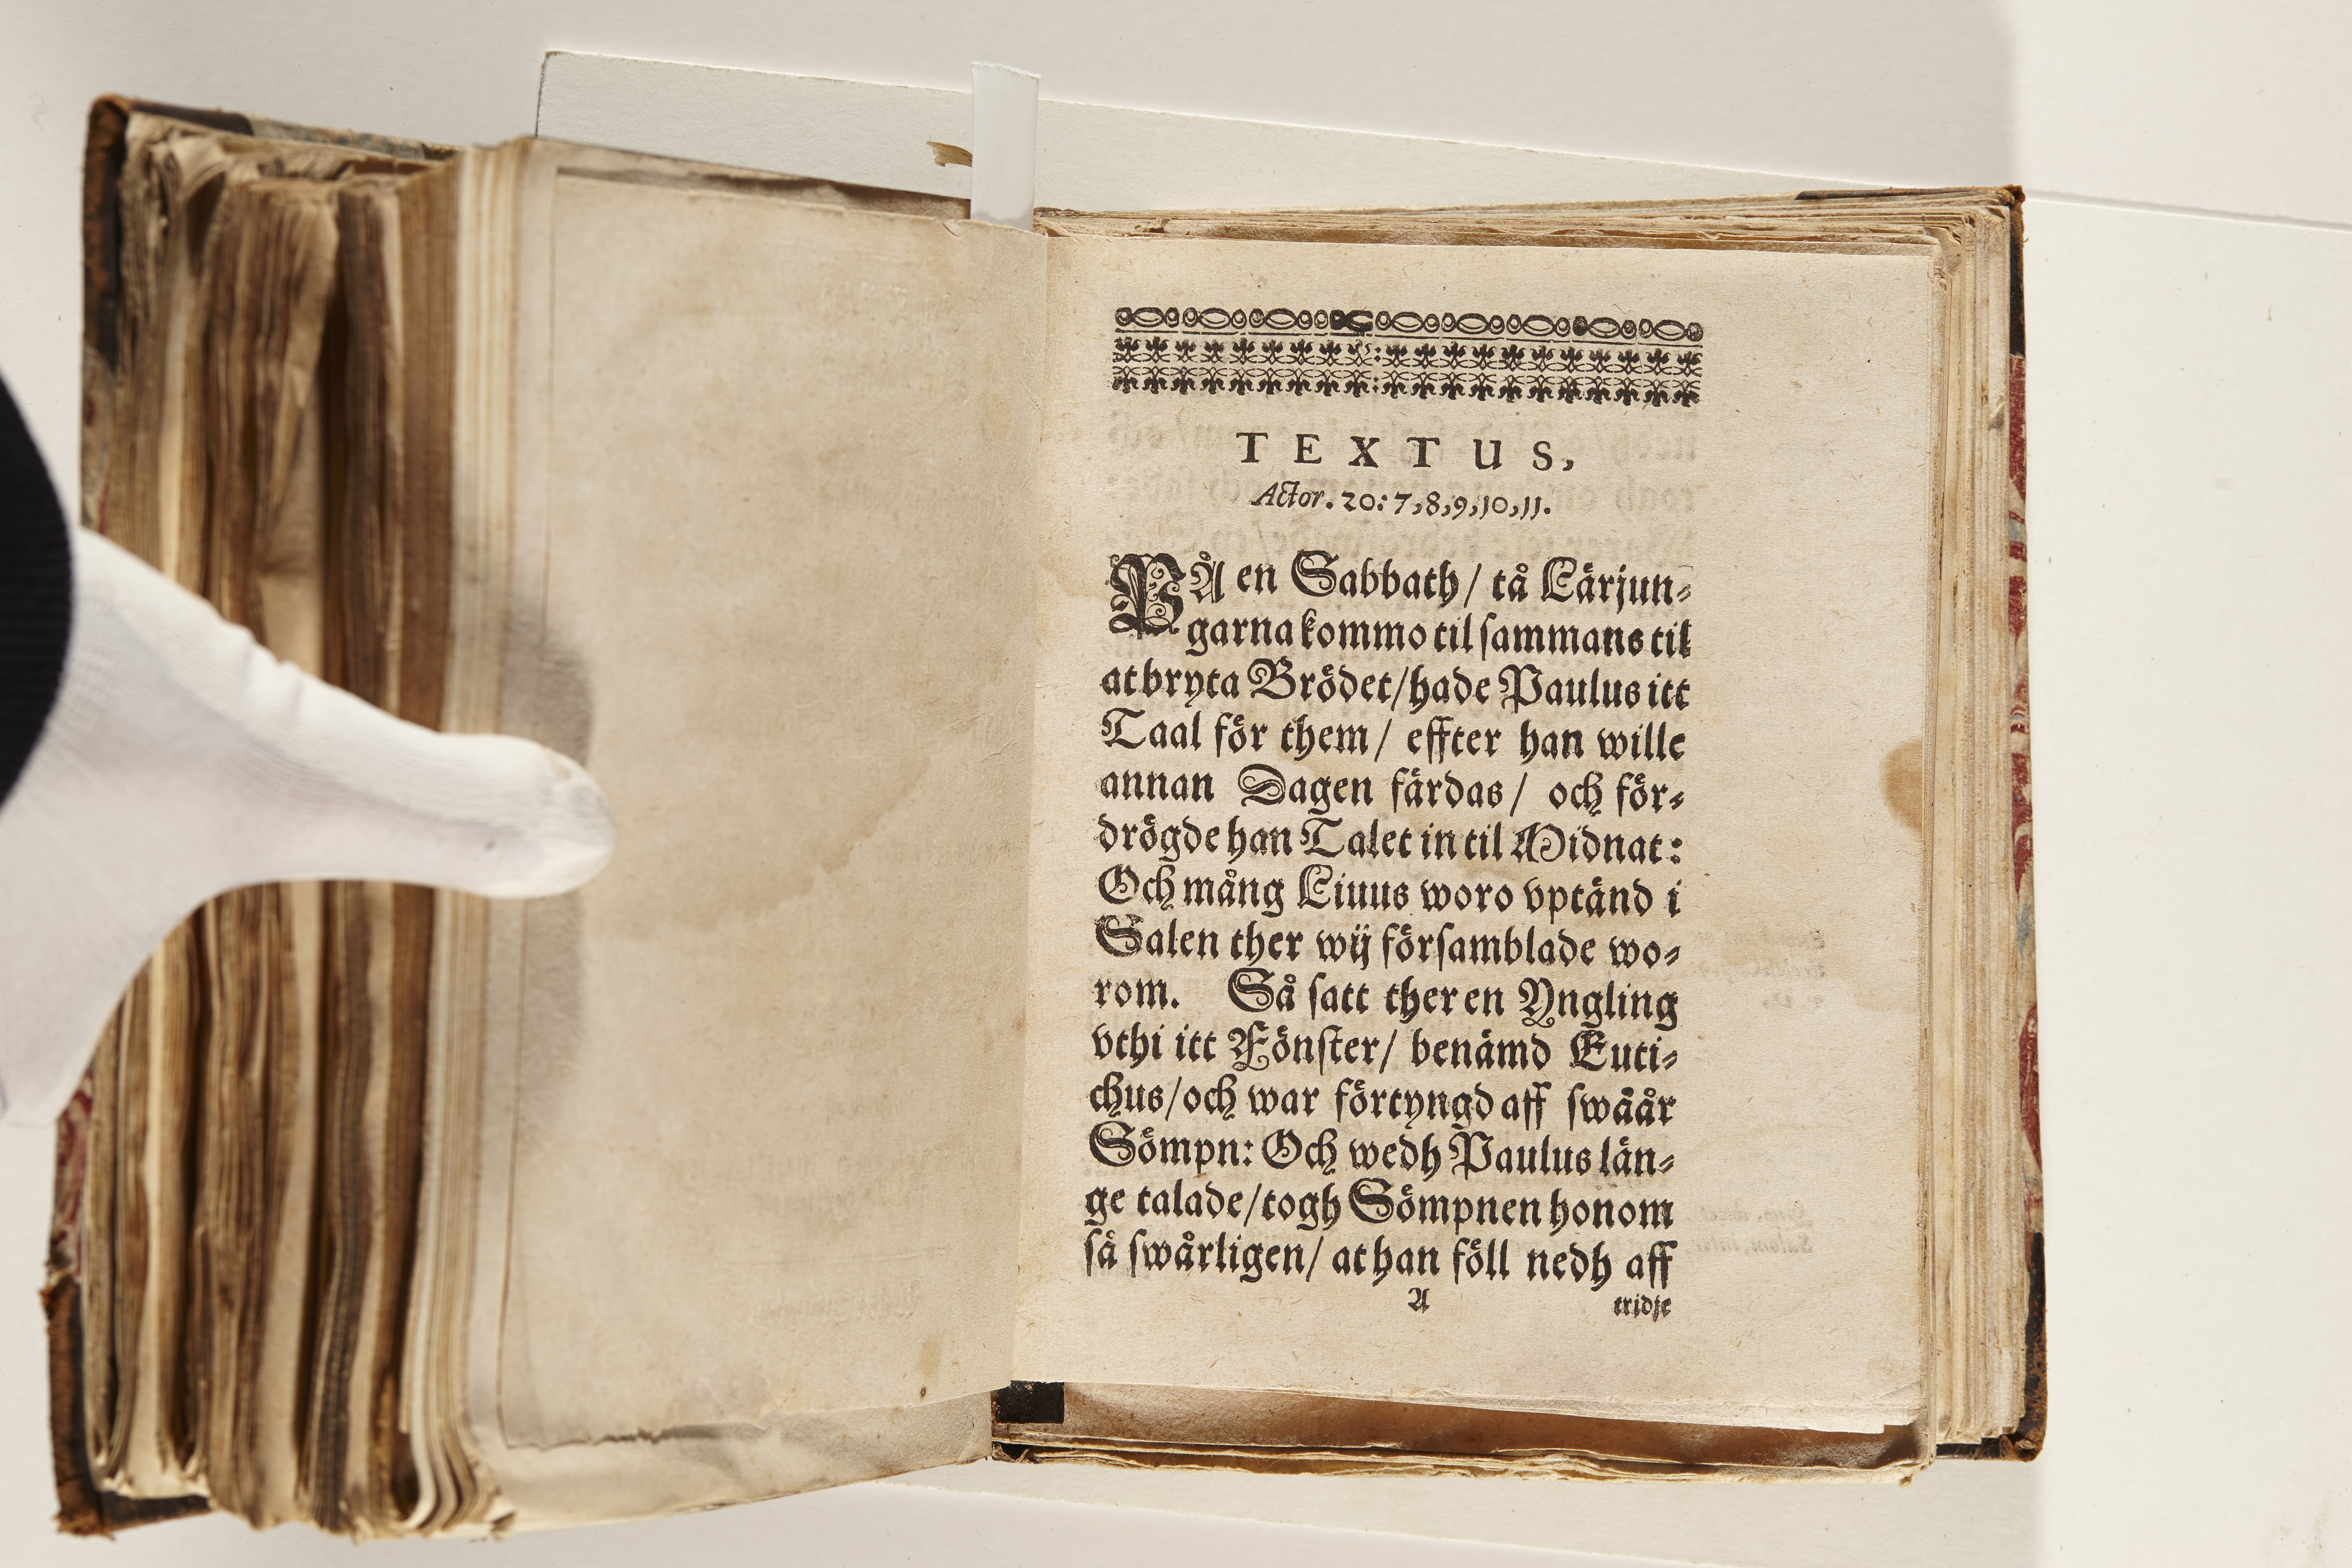 TEXTUS,
Actor. 20: 7,8,9,10,11.
PÅ en Sabbath/ tå Lärjun⸗
garna kommo til sammans til
at bryta Brödet/ hade Paulus itt
Taal för them/ effter han wille
annan Dagen färdas/ och för⸗
drögde han Talet in til Midnat:
Och mång Liuus woro vptänd i
Salen ther wij församblade wo⸗
rom. Så satt ther en Yngling
vthi itt Fönster/ benämd Euti⸗
chus/ och war förtyngd aff swåår
Sömpn: Och wedh Paulus län⸗
ge talade/ togh Sömpnen honom
så swårligen/ at han föll nedh aff
A tridje